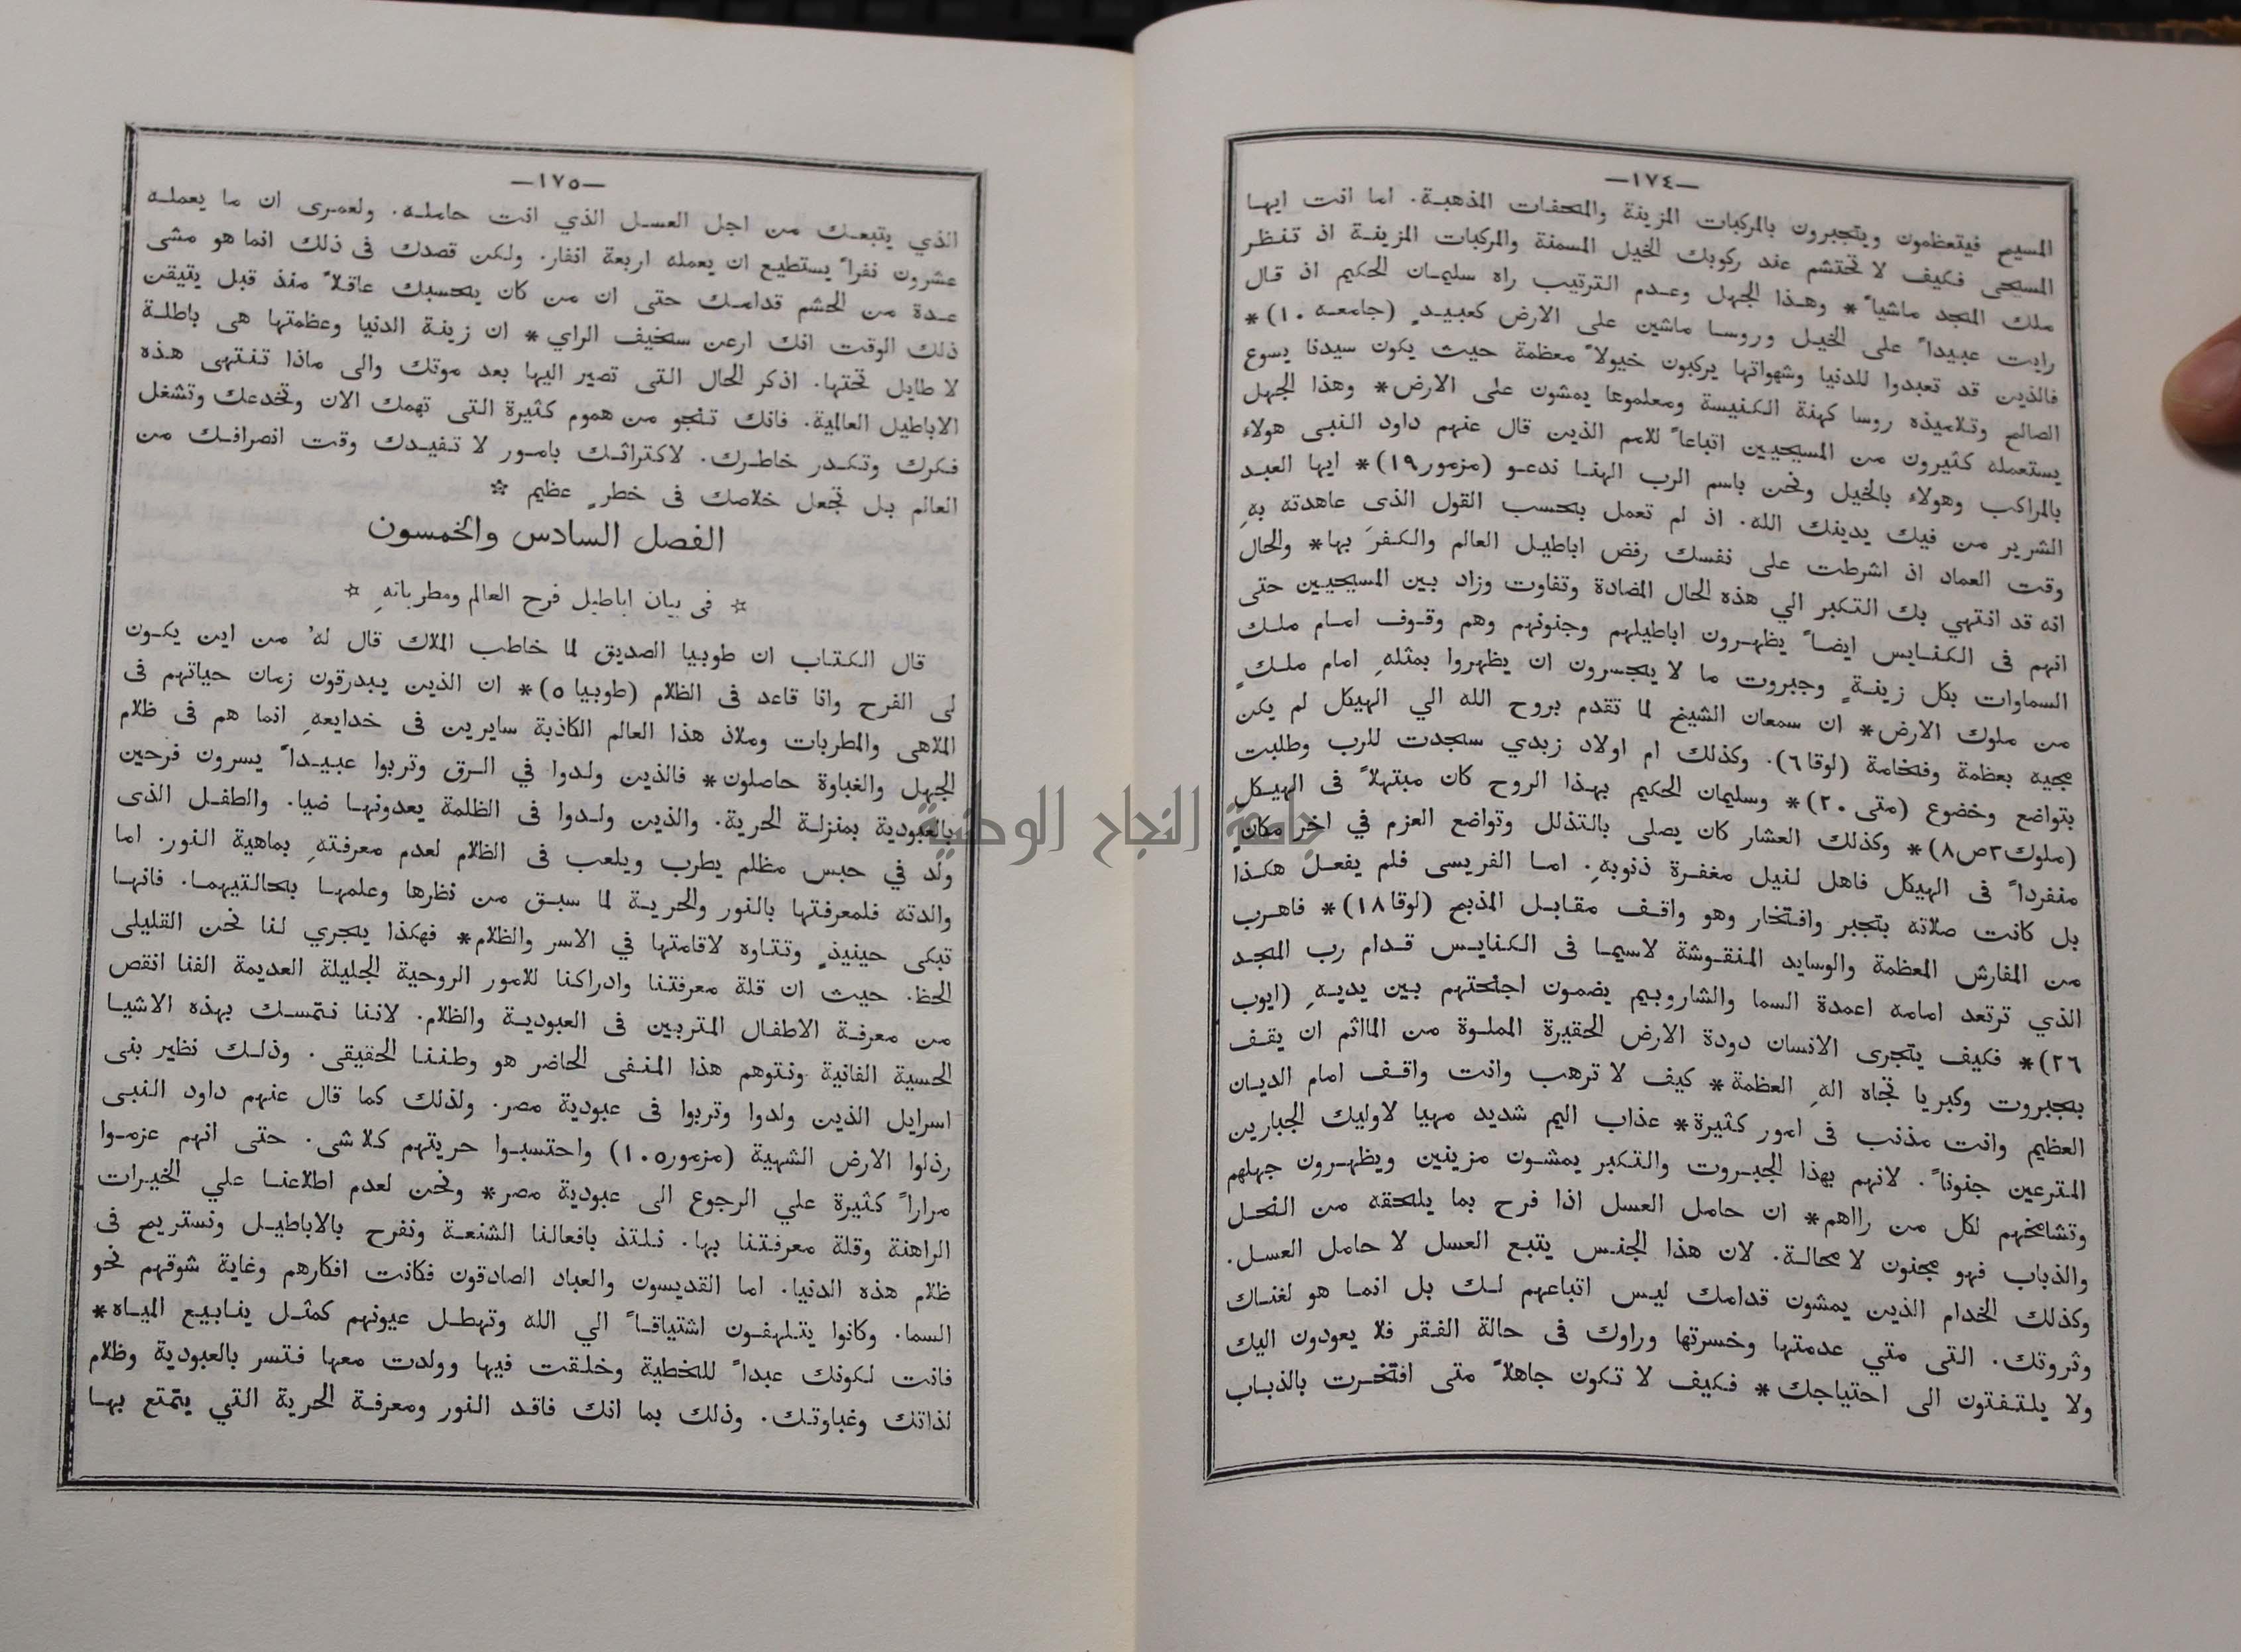 —١٧٤—
المسيح فيتعظمون ويتجبرون بالمركبات المزينة والمتحفات المذهبة. اما انت ايها
المسيحى فكيف لا تحتشم عند ركوبك الخيل المسمنة والمركبات المزينة اذ تنظر
ملك المجد ماشياً* وهذا الجهل وعدم الترتيب راه سليمان الحكيم اذ قال
رايت عبيداً على الخيل وروسا ماشين على الارض كعبيدٍ (جامعه ١٠)*
فالذين قد تعبدوا للدنيا وشهواتها يركبون خيولاً معظمة حيث يكون سيدنا يسوع
الصالح وتلاميذه روسا كهنة الكنيسة ومعلموها يمشون على الارض* وهذا الجهل
يستعمله كثيرون من المسيحيين اتباعاً للامم الذين قال عنهم داود النبى هولاء
بالمراكب وهولاء بالخيل ونحن باسم الرب الهنا ندعو (مزمور١٩)* ايها العبد
الشرير من فيك يدينك الله. اذ لم تعمل بحسب القول الذى عاهدته بهِ
وقت العماد اذ اشرطت على نفسك رفض اباطيل العالم والكفرَ بها* والحال
انه قد انتهي بك التكبر الي هذه الحال المضادة وتفاوت وزاد بين المسيحيين حتى
انهم فى الكنايس ايضاً يظهرون اباطيلهم وجنونهم وهم وقوف امام ملك
السماوات بكل زينةٍ وجبروت ما لا يجسرون ان يظهروا بمثلهِ امام ملكٍ
من ملوك الارض* ان سمعان الشيخ لما تقدم بروح الله الي الهيكل لم يكن
مجيه بعظمة وفخامة (لوقا٦). وكذلك ام اولاد زبدي سجدت للرب وطلبت
بتواضع وخضوع (متى ٢٠)* وسليمان الحكيم بهذا الروح كان مبتهلاً فى الهيكل
(ملوك٣ص٨)* وكذلك العشار كان يصلى بالتذلل وتواضع العزم في اخر مكانٍ
منفرداً فى الهيكل فاهل لنيل مغفرة ذنوبهِ. اما الفريسى فلم يفعل هكذا
بل كانت صلاته بتجبر وافتخار وهو واقف مقابل المذبح (لوقا١٨)* فاهرب
من المفارش المعظمة والوسايد المنقوشة لاسيما فى الكنايس قدام رب المجد
الذي ترتعد امامه اعمدة السما والشاروبيم يضمون اجنحتهم بين يديهِ (ايوب
٢٦)* فكيف يتجرى الانسان دودة الارض الحقيرة المملوة من المااثم ان يقف
بجبروت وكبريا تجاه الهِ العظمة* كيف لا ترهب وانت واقف امام الديان
العظيم وانت مذنب فى امور كثيرة* عذاب اليم شديد مهيا لاوليك الجبارين
المترعين جنوناً. لانهم بهذا الجبروت والتكبر يمشون مزينين ويظهرون جهلهم
وتشامخهم لكل من رااهم* ان حامل العسل اذا فرح بما يلحقه من النحل
والذباب فهو مجنون لا محالة. لان هذا الجنس يتبع العسل لا حامل العسل.
وكذلك الخدام الذين يمشون قدامك ليس اتباعهم لك بل انما هو لغناك
وثروتك. التى متي عدمتها وخسرتها وراوك فى حالة الفقر فلا يعودون اليك
ولا يلتفتون الى احتياجك* فكيف لا تكون جاهلاً متى افتخرت بالذباب
—١٧٥—
الذي يتبعك من اجل العسل الذي انت حامله. ولعمرى ان ما يعمله
عشرون نفراً يستطيع ان يعمله اربعة انفار. ولكن قصدك فى ذلك انما هو مشى
عدة من الحشم قدامك حتى ان من كان يحسبك عاقلاً منذ قبل يتيقن
ذلك الوقت انك ارعن سخيف الراي* ان زينة الدنيا وعظمتها هى باطلة
لا طايل تحتها. اذكر الحال التى تصير اليها بعد موتك والى ماذا تنتهى هذه
الاباطيل العالمية. فانك تنجو من هموم كثيرة التى تهمك الان وتخدعك وتشغل
فكرك وتكدر خاطرك. لاكتراثك بامور لا تفيدك وقت انصرافك من
العالم بل تجعل خلاصك فى خطرٍ عظيم *
الفصل السادس والخمسون
* فى بيان اباطيل فرح العالم ومطرباتهِ *
قال الكتاب ان طوبيا الصديق لما خاطب الملاك قال لهُ من اين يكون
لى الفرح وانا قاعد فى الظلام (طوبيا ٥)* ان الذين يبدرقون زمان حياتهم فى
الملاهى والمطربات وملاذ هذا العالم الكاذبة سايرين فى خدايعهِ انما هم فى ظلام
الجهل والغباوة حاصلون* فالذين ولدوا في الرق وتربوا عبيداً يسرون فرحين
بالعبودية بمنزلة الحرية. والذين ولدوا فى الظلمة يعدونها ضيا. والطفل الذى
ولُد في حبس مظلم يطرب ويلعب فى الظلام لعدم معرفتهِ بماهية النور. اما
والدته فلمعرفتها بالنور والحرية لما سبق من نظرها وعلمها بحالتيهما. فانها
تبكى حينيذٍ وتتاوه لاقامتها في الاسر والظلام* فهكذا يجري لنا نحن القليلى
الحظ. حيث ان قلة معرفتنا وادراكنا للامور الروحية الجليلة العديمة الفنا انقص
من معرفة الاطفال المتربين فى العبودية والظلام. لاننا نتمسك بهذه الاشيا
الحسية الفانية ونتوهم هذا المنفى الحاضر هو وطننا الحقيقى. وذلك نظير بنى
اسرايل الذين ولدوا وتربوا فى عبودية مصر. ولذلك كما قال عنهم داود النبى
رذلوا الارض الشهية (مزمور١٠٥) واحتسبوا حريتهم كلا شى. حتى انهم عزموا
مراراً كثيرة علي الرجوع الى عبودية مصر* ونحن لعدم اطلاعنا علي الخيرات
الراهنة وقلة معرفتنا بها. نلتذ بافعالنا الشنعة ونفرح بالاباطيل ونستريح فى
ظلام هذه الدنيا. اما القديسون والعباد الصادقون فكانت افكارهم وغاية شوقهم نحو
السما. وكانوا يتلهفون اشتياقاً الي الله وتهطل عيونهم كمثل ينابيع المياه*
فانت لكونك عبداً للخطية وخلقت فيها وولدت معها فتسر بالعبودية وظلام
لذاتك وغباوتك. وذلك بما انك فاقد النور ومعرفة الحرية التي يتمتع بها
جامعة النجاح الوطنية